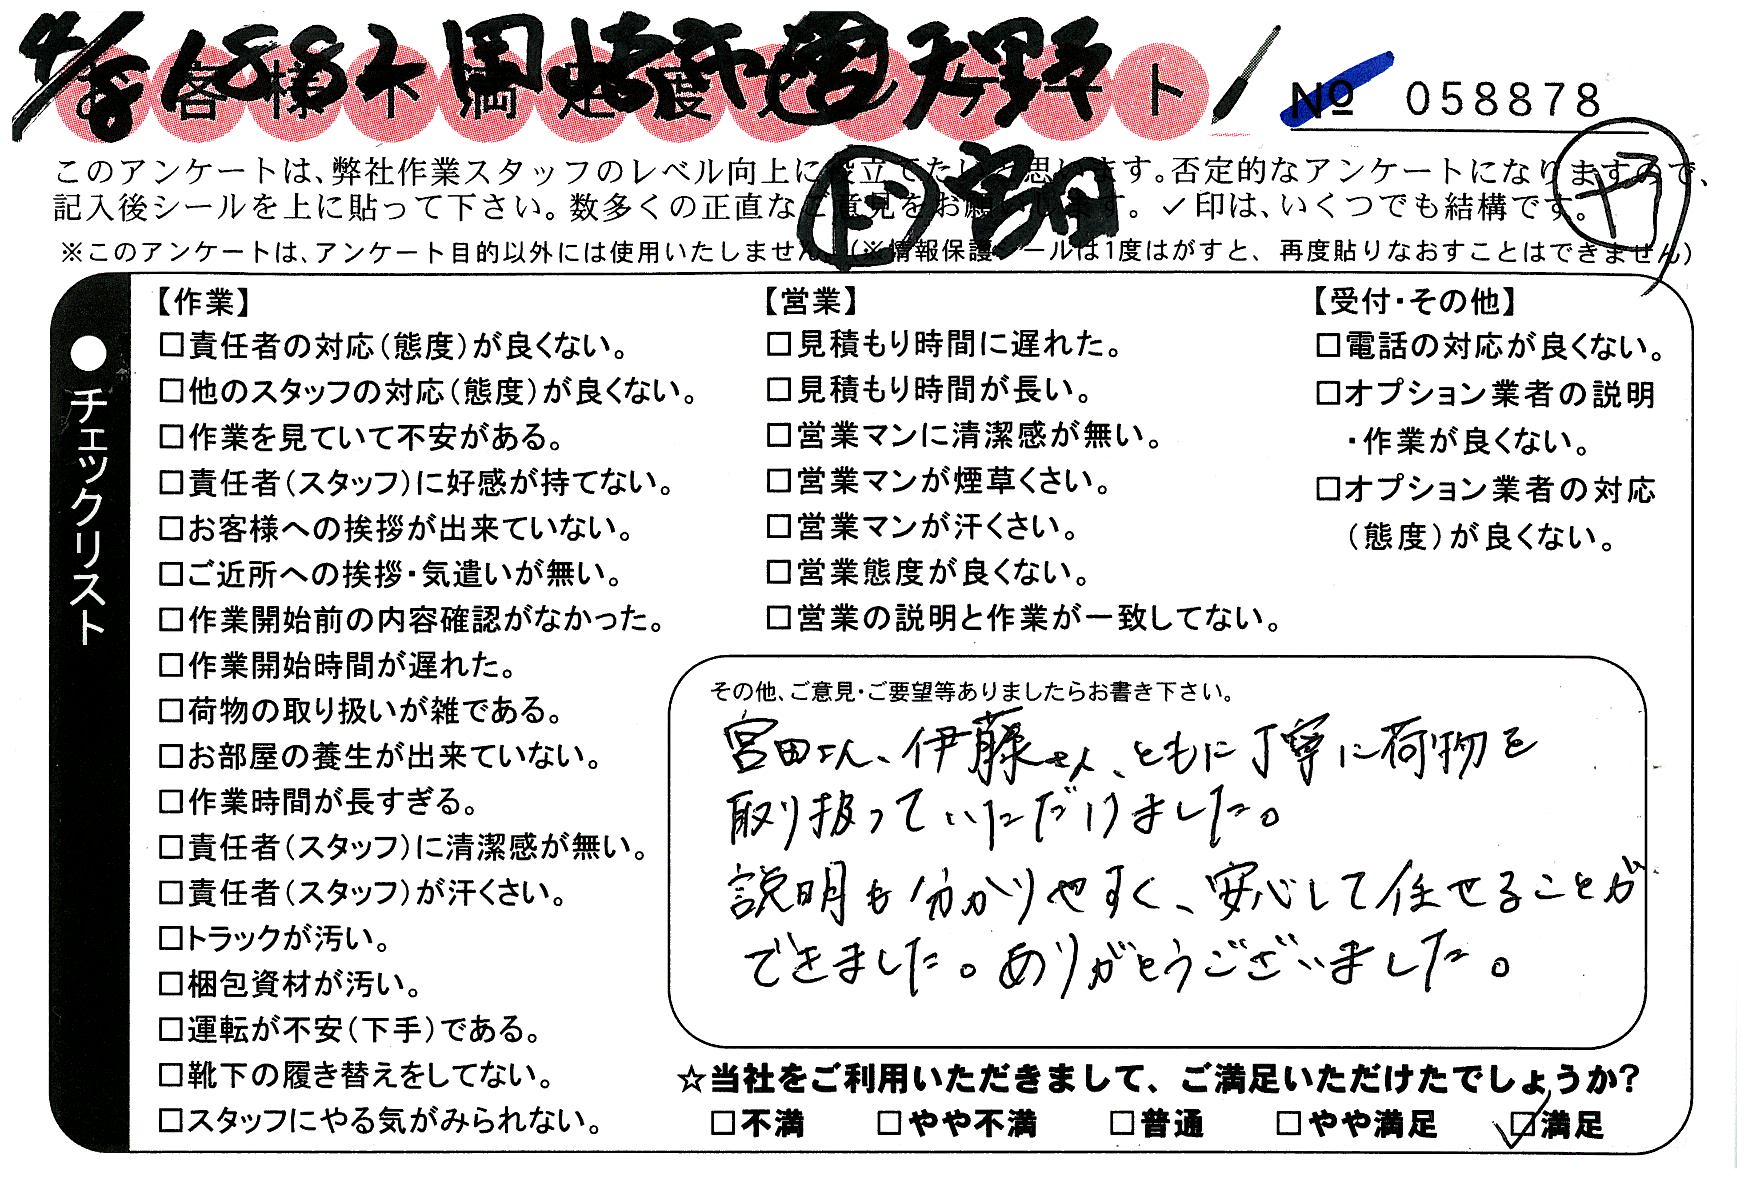 お客様不満足度アンケート
№ 058878
このアンケートは、弊社作業スタッフのレベル向上に役立てたいと思います。否定的なアンケートになりますので、
記入後シールを上に貼って下さい。数多くの正直なご意見をお願いします。✓印は、いくつでも結構です。
㋳
宮田
※このアンケートは、アンケート目的以外には使用いたしません。(※情報保護シールは1度はがすと、再度貼りなおすことはできません)
●チェックリスト
【作業】
□責任者の対応(態度)が良くない。
□他のスタッフの対応(態度)が良くない。
□作業を見ていて不安がある。
□責任者(スタッフ)に好感が持てない。
□お客様への挨拶が出来ていない。
□ご近所への挨拶・気遣いが無い。
□作業開始前の内容確認がなかった。
□作業開始時間が遅れた。
□荷物の取り扱いが雑である。
□お部屋の養生が出来ていない。
□作業時間が長すぎる。
□責任者(スタッフ)に清潔感が無い。
□責任者(スタッフ)が汗くさい。
□トラックが汚い。
□梱包資材が汚い。
□運転が不安(下手)である。
□靴下の履き替えをしてない。
□スタッフにやる気がみられない。
【営業】
□見積もり時間に遅れた。
□見積もり時間が長い。
□営業マンに清潔感が無い。
□営業マンが煙草くさい。
□営業マンが汗くさい。
□営業態度が良くない。
□営業の説明と作業が一致してない。
【受付・その他】
□電話の対応が良くない。
□オプション業者の説明
・作業が良くない。
□オプション業者の対応
(態度)が良くない。
その他、ご意見・ご要望等ありましたらお書き下さい。
宮田さん、伊藤さん、ともに丁寧に荷物を
取り扱っていただけました。
説明も分かりやすく、安心して任せることが
できました。ありがとうございました。
☆当社をご利用いただきまして、ご満足いただけたでしょうか?
□不満 □やや不満 □普通 □やや満足 ☑満足